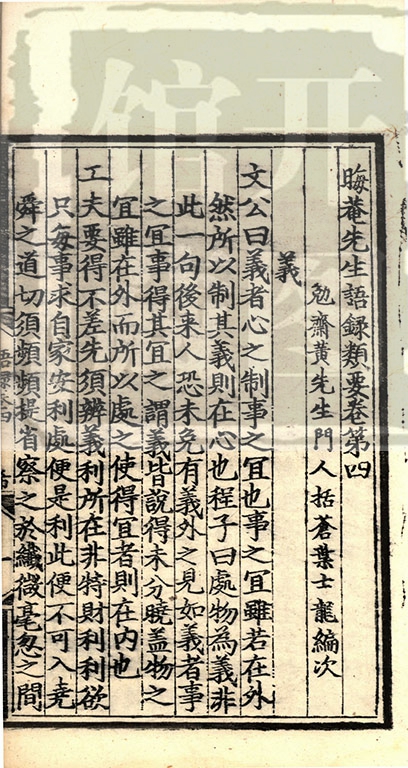 晦菴先生語録類要卷第四
勉齋黄先生門人括蒼葉士龍編次
義
文公曰義者心之制事之冝也事之冝雖若在外
然所以制其義則在心也程子曰處物為義非
此一句後來人恐未免有義外之見如義者事
之冝事得其冝之謂義皆說得未分曉盖物之
冝雖在外而所以處之使得冝者則在内也
工夫要得不差先須辨義利所在非特財利利欲
只每事求自家安利處便是利此便不可入堯
舜之道切須頻頻提省察之於纎微毫忽之間